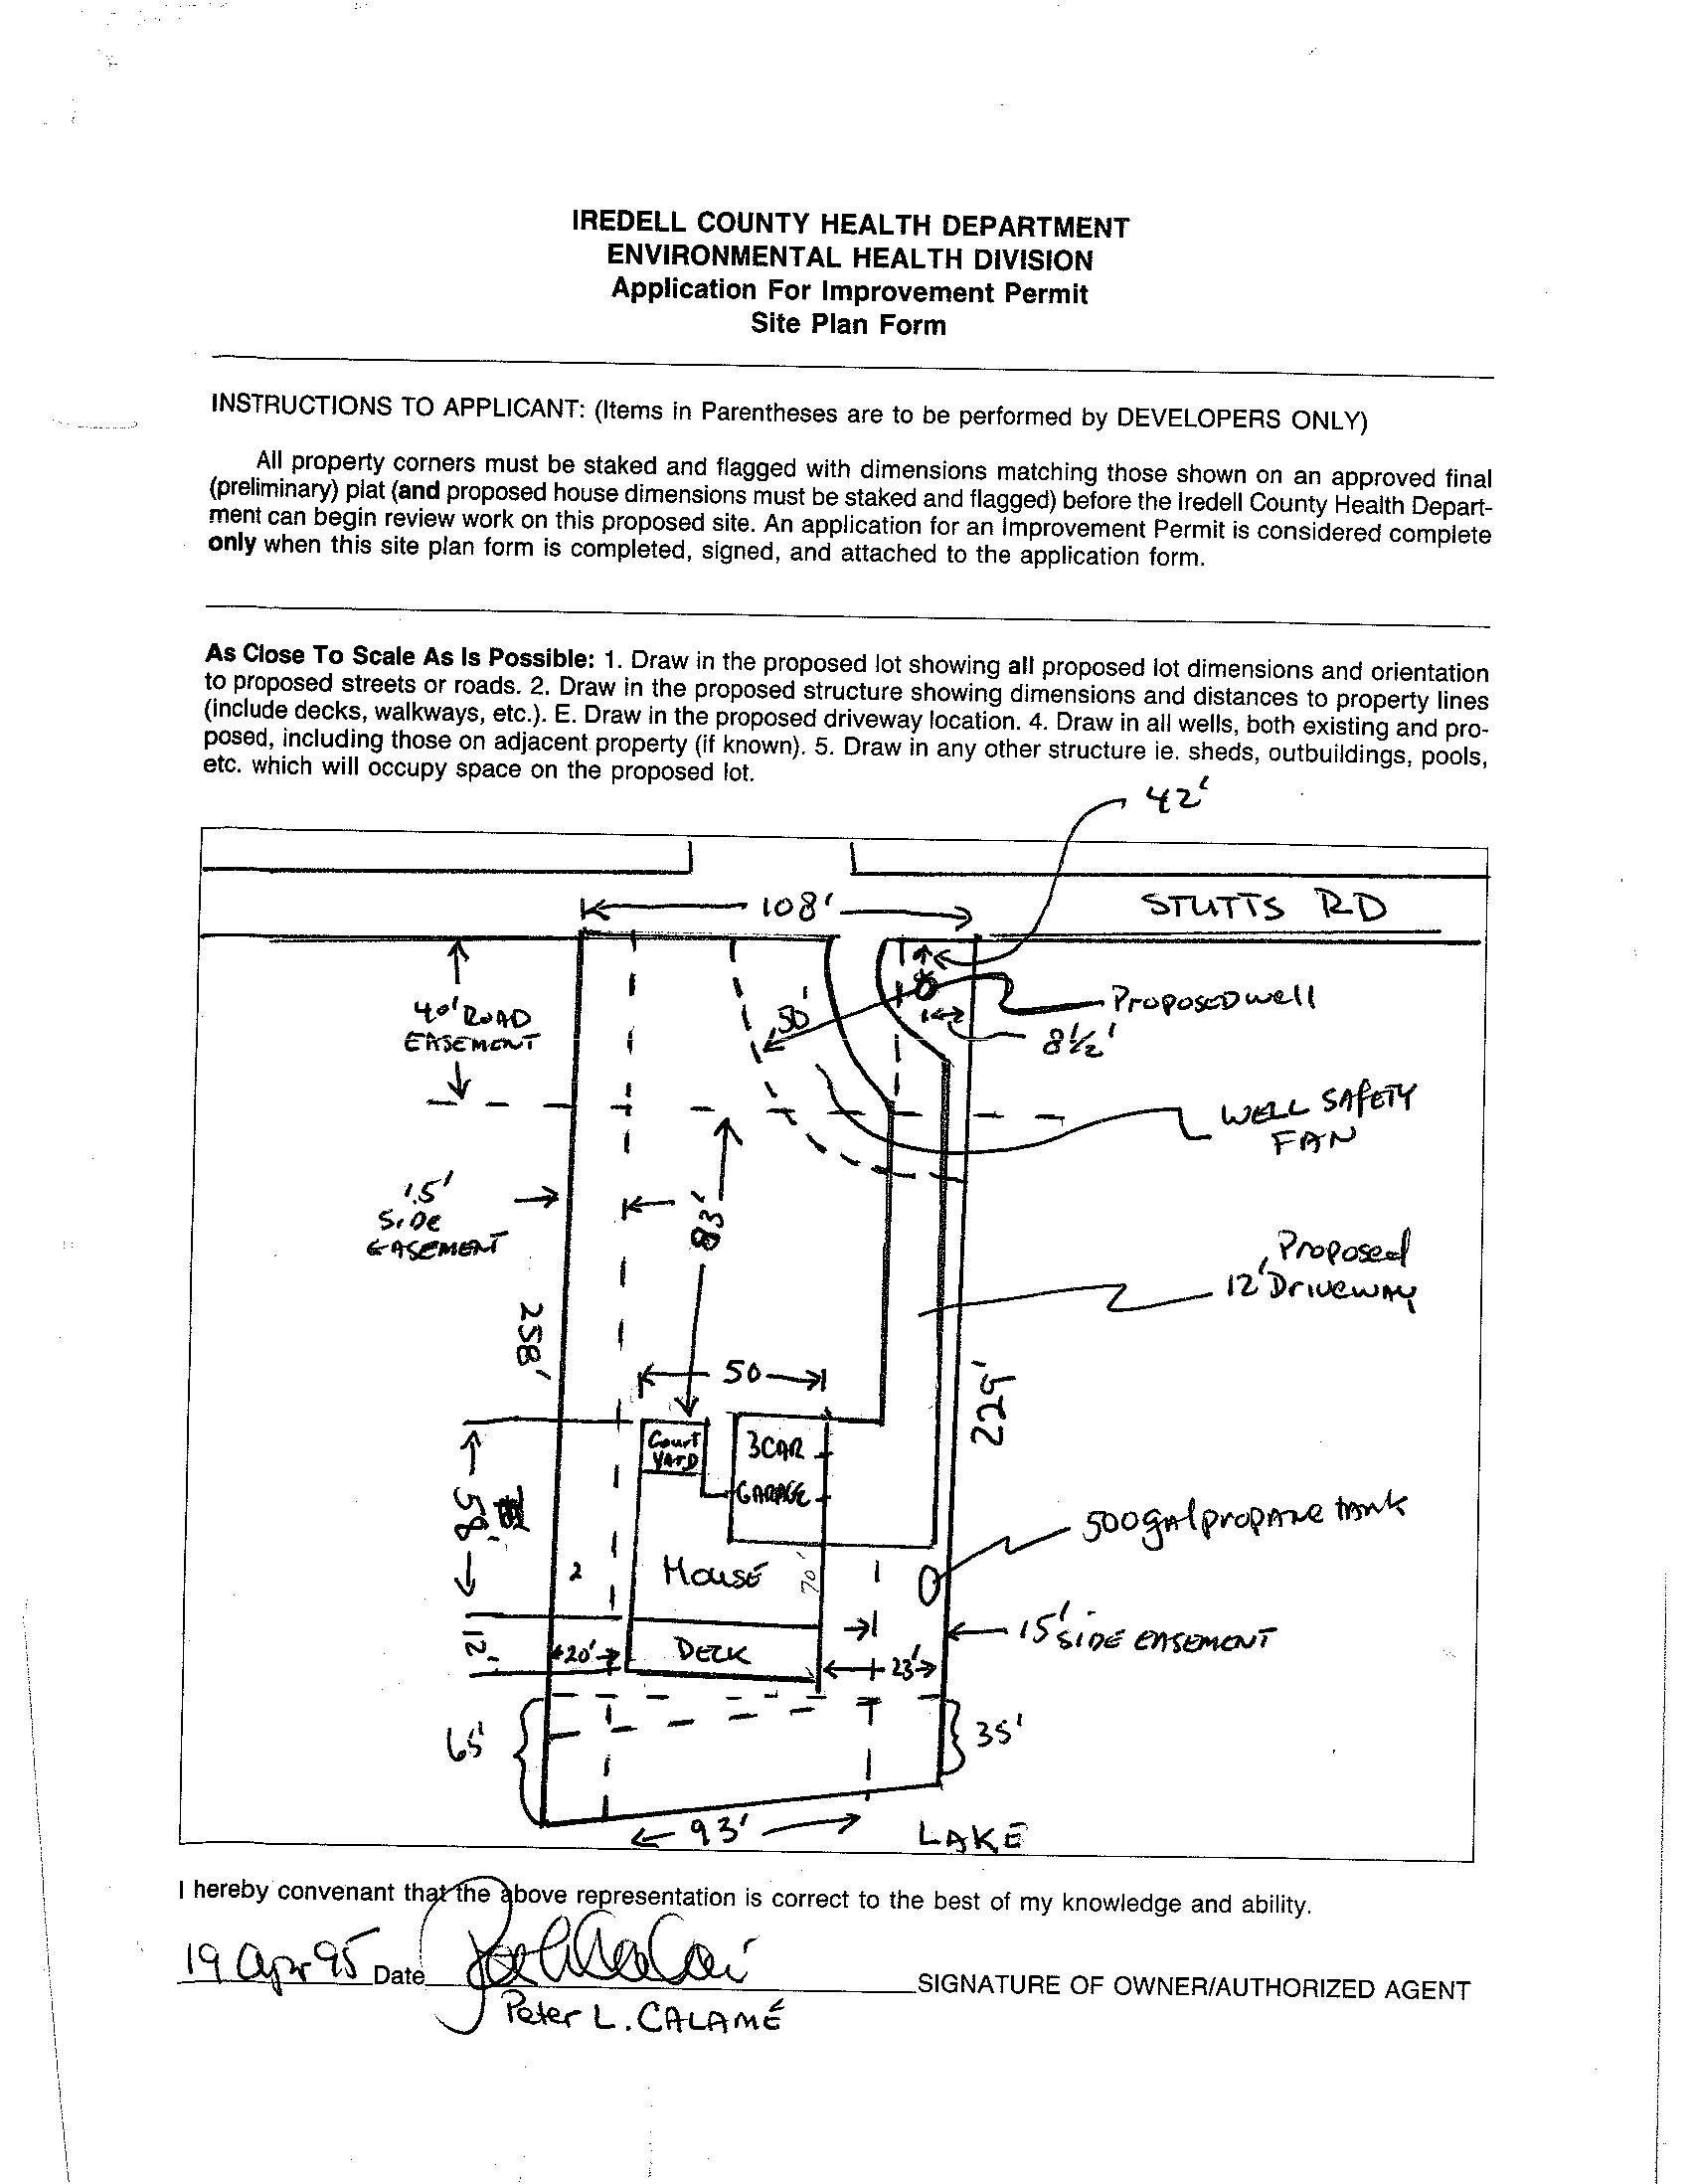 IREDELL COUNTY HEALTH DEPARTMENT
ENVIRONMENTAL HEALTH DIVISION
Application For Improvement Permit
Site Plan Form
INSTRUCTIONS TO APPLICANT: (Items in Parentheses are to be performed by DEVELOPERS ONLY)
All property corners must be staked and flagged with dimensions matching those shown on an approved final
(preliminary) plat (and proposed house dimensions must be staked and flagged) before the Iredell County Health Depart-
ment can begin review work on this proposed site. An application for an Improvement Permit is considered complete
only when this site plan form is completed, signed, and attached to the application form.
As Close To Scale As Is Possible: 1. Draw in the proposed lot showing all proposed lot dimensions and orientation
to proposed streets or roads. 2. Draw in the proposed structure showing dimensions and distances to property lines
(include decks, walkways, etc.). E. Draw in the proposed driveway location. 4. Draw in all wells, both existing and pro-
posed, including those on adjacent property (if known). 5. Draw in any other structure ie. sheds, outbuildings, pools,
etc. which will occupy space on the proposed lot.
42'
108'
STUTTS RD
40' ROAD
EASEMENT
50'
Proposed well
8½'
WELL SAFETY
FAN
15'
SIDE
EASEMENT
83'
Proposed
12' Driveway
258'
50
225'
Court
YARD
3 CAR
GARAGE
58'
500 gal propane tank
2
House
70'
15' SIDE EASEMENT
12'
20'
DECK
23'
65'
35'
93'
LAKE
I hereby convenant that the above representation is correct to the best of my knowledge and ability.
19 Apr 95 Date
SIGNATURE OF OWNER/AUTHORIZED AGENT
Peter L. CALAMÉ